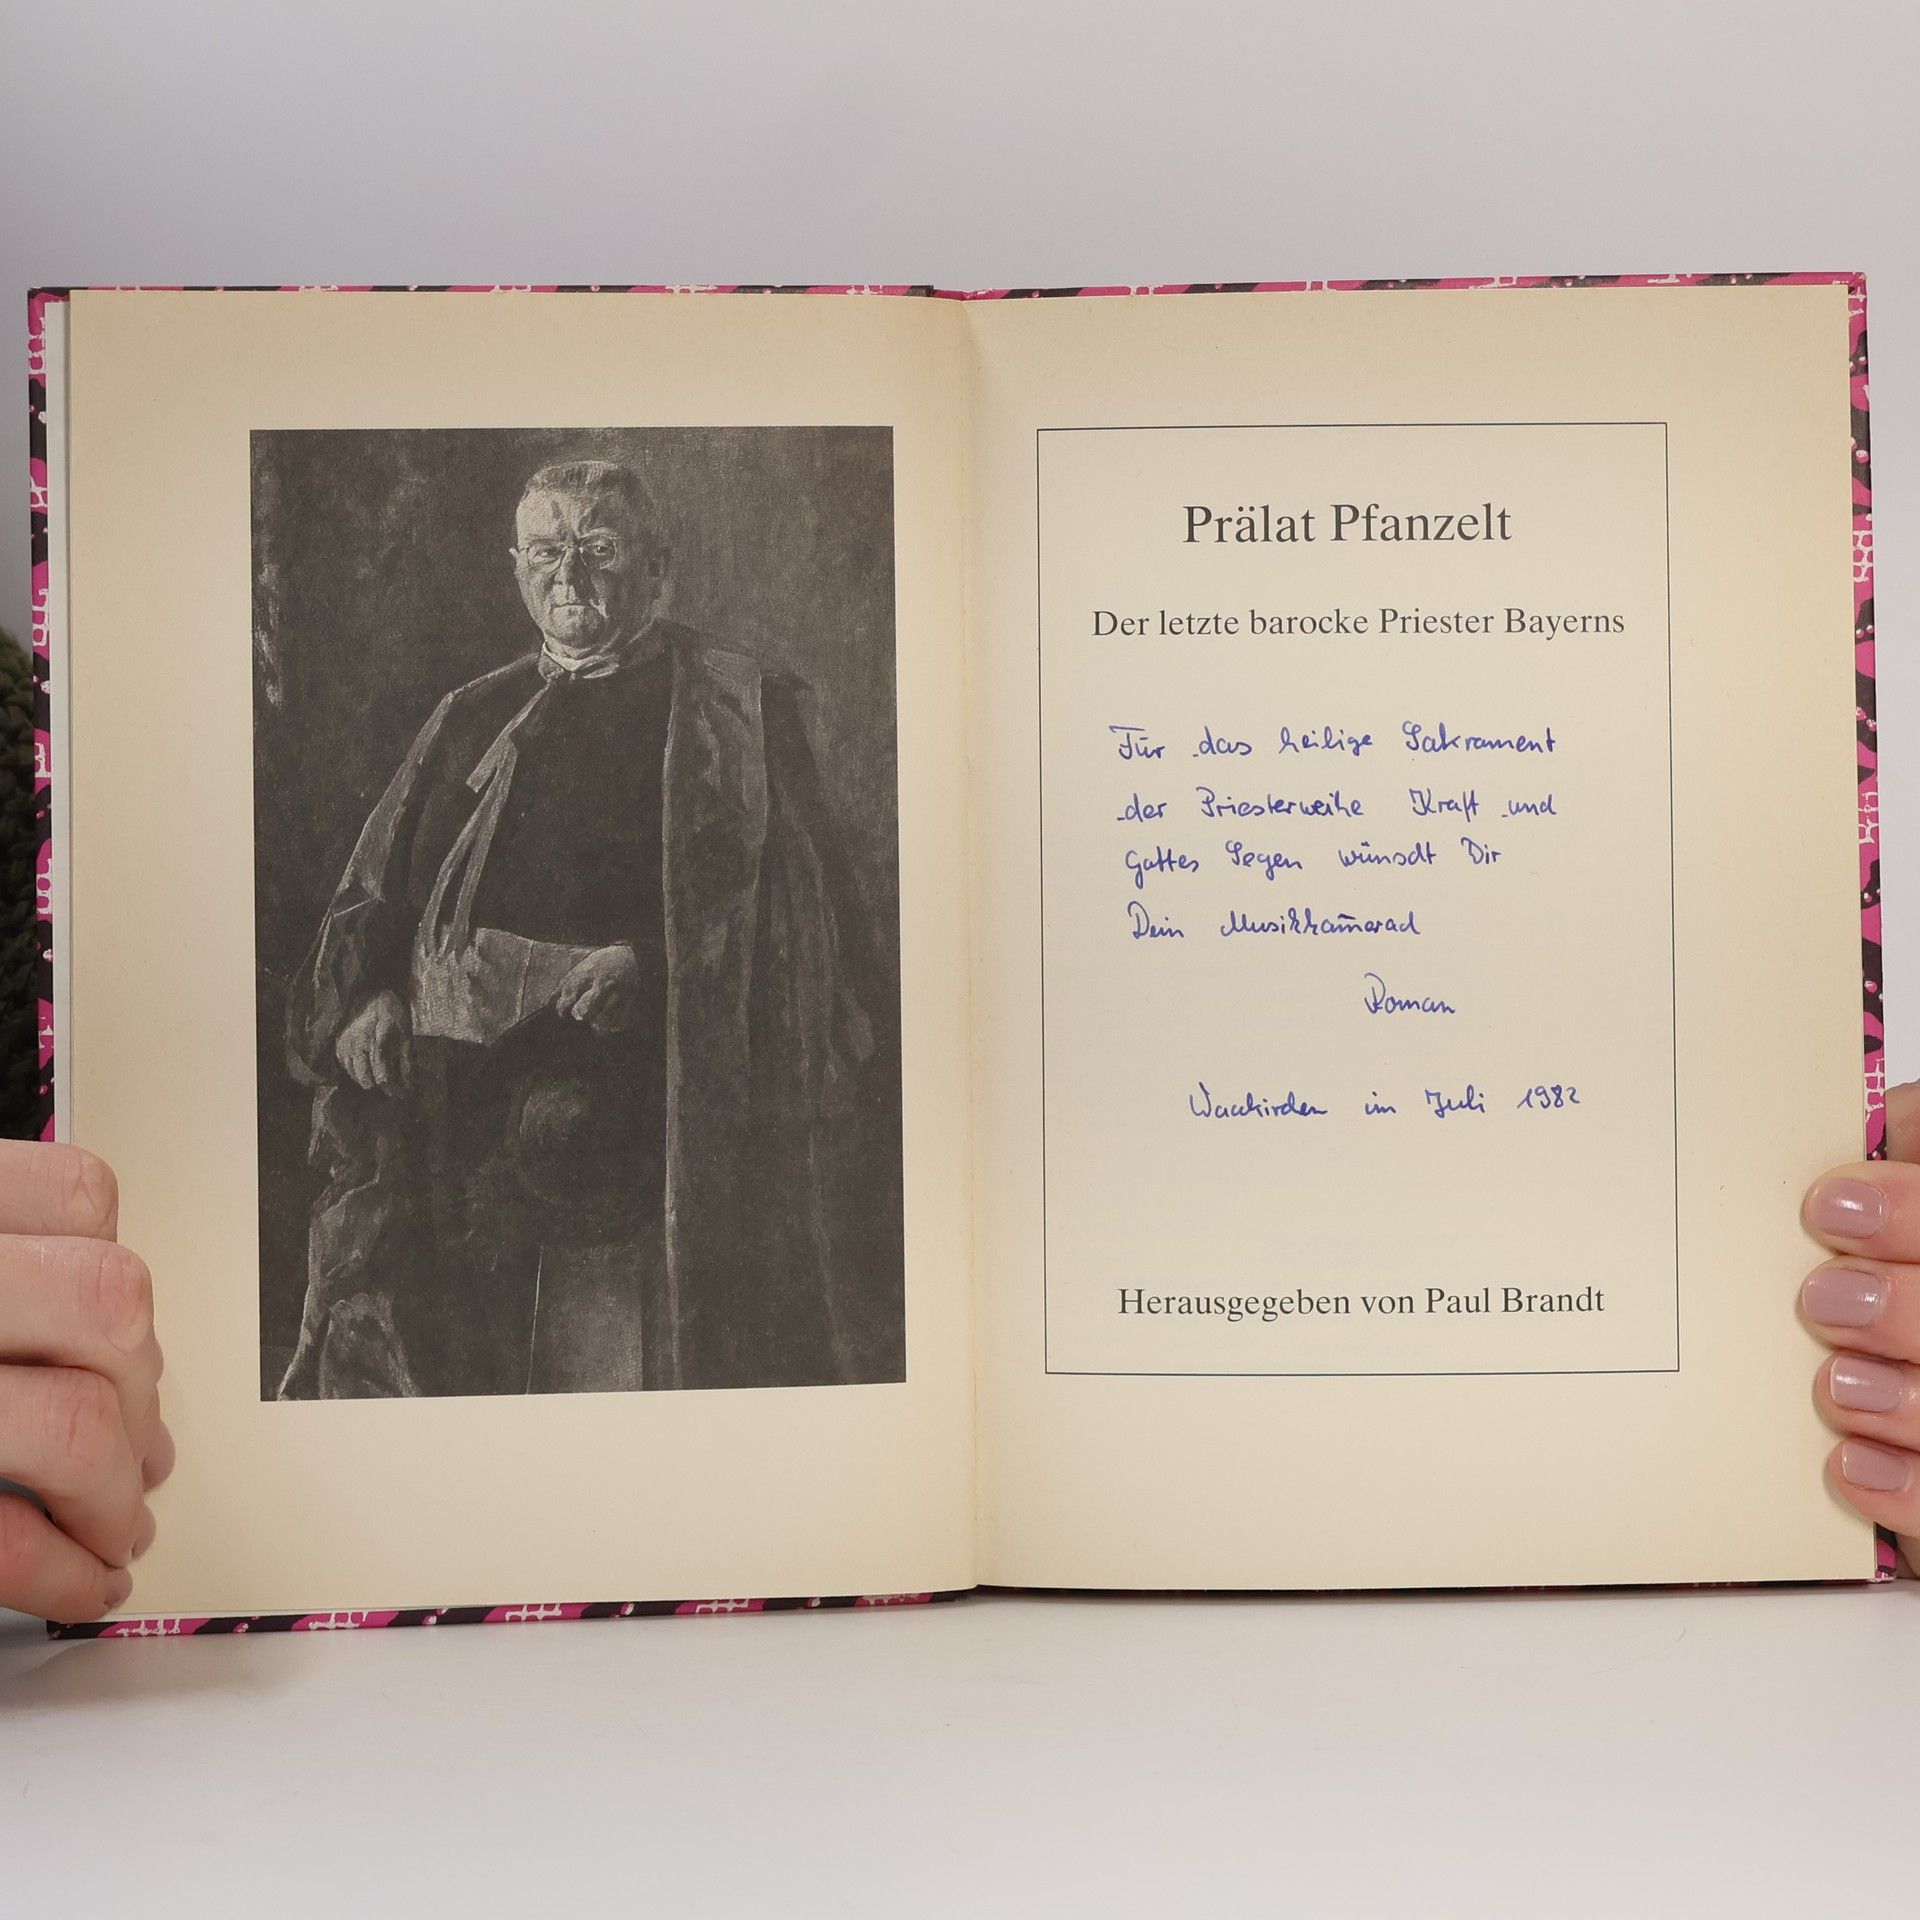 Prälat Pfanzelt
Der letzte barocke Priester Bayerns
Für das heilige Sakrament
der Priesterweihe Kraft und
Gottes Segen wünscht Dir
Dein Musikkam̅erad
Roman
Waakirchen im Juli 1982
Herausgegeben von Paul Brandt